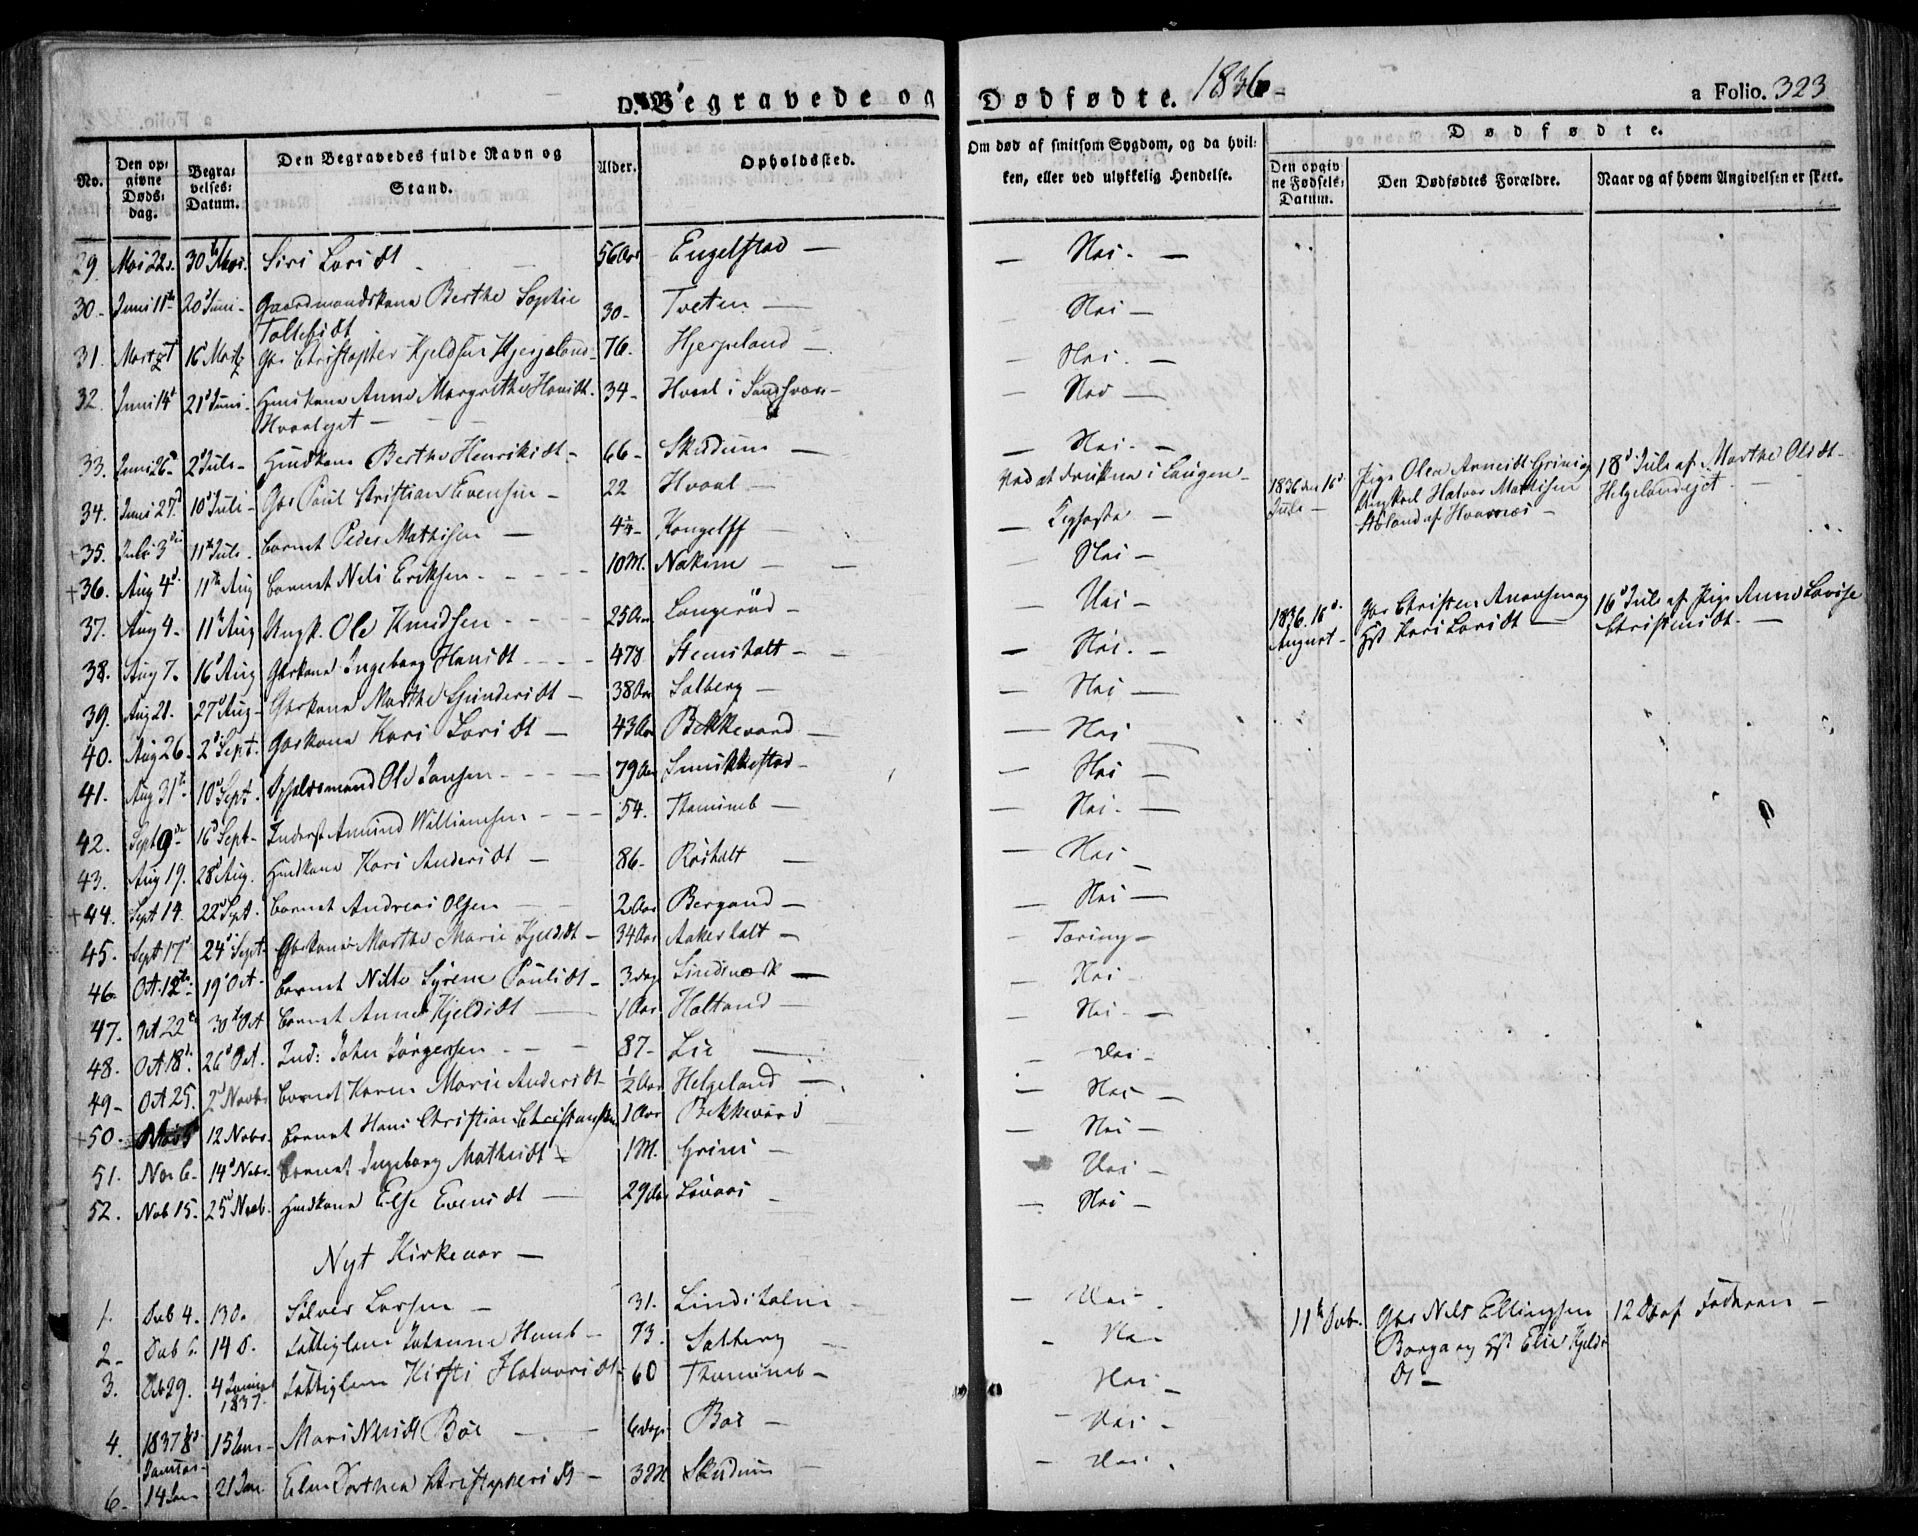 D. Begravede og Dødfødte. 1836 a Folio. 323
No.
Den opgivne Døds-dag.
Begravelses-Datum.
Den Begravedes fulde Navn og Stand.
Alder.
Opholdssted.
Om død af smitsom Sygdom, og da hvilken, eller ved ulykkelig Hendelse.
Dødfødte.
Den opgivne Fødsels-Datum.
Den Dødfødtes Forældre.
Naar og af hvem Angivelsen er skeet.
29. Mai 22. 30 Mai. Siri Larsdt 56 Aar Engelstad — Nei. —
30 Juni 11te 20 Juni Gaardmandskone Berthe Sophie 30 Tveten — Nei —
Toltefsdt
31. Martz 16 Martz Gbr Christopher Kjeldsen Hjerpeland 76. Hjerpeland — Nei. —
32. Juni 14 21 Juni Huskone Anne Margrethe Hansdt. 34 Hvaal i Sandsvær — Nei —
Hvaaleyet
33. Juni 26 2 Juli Huskone Berthe Henriksdt 66 Skudum — Nei. —
34. Juni 27 10 Juli Gbs Poul Christian Evensen 22 Hvaal — Ved at drukne i Laugen
1836 den 16 Juli — Pige Olea Arnesdt Grini og Ungkarl Halvor Mathisen Åsland af Hvarnæs — 18 Juli af Marthe Olsdt Helgelandeyet
+35. Juli 3 11te Juli Barnet Peder Mathisen — 4¼ Kongsgr — Kighoste —
+36. Aug 4 11te Aug Barnet Nels Eriksen 10 M. Nakim — Nei —
37. Aug 4 11te Aug Ungk. Ole Knudsen 25 Aar Langerød — Nei —
1836. 16 August — Gbr Christen Anansen og Hst Kari Larsdt — 16 Juli af Pige Anne Lovise Christensdt. —
38. Aug 7. 16 Aug Gbrkone Ingeborg Hansdt 47 Stenshalt — Nei. —
39. Aug 21. 27 Aug Gbrkone Marthe Gundersdt 38 Aar Solberg — Nei —
40. Aug 26 2 Sept. Gbrkone Kari Larsdt — 43 Aar Bekkevard — Nei
41. Aug 31te 10 Sept. Ole Jansen 79 Aar Smukkestad — Nei —
42. Sept 9de 16 Sept Inderst Amund Williamsen 54. Thamineb — Nei. —
43. Aug 19. 28 Aug. Huskone Kari Andersdt — 86 Røishalt — Nei —
+44. Sept 14. 22 Sept. Barnet Andreas Olsen 2 Aar Bergand — Nei —
45. Sept 17 24 Sept Gbrkone Marthe Marie Kjelsdt 34 Aar Aakerhalt — Tæring —
46. Oct. 12te 19 Oct Barnet Nille Syrene Poulsdt 3 dage Lindsværk — Nei —
47. Oct 22de 30te Oct Barnet Anne Kjeldsdt 1 Aar Holtand — Nei —
48. Oct 18 26 Oct. Ind: John Jørgensen 87 Lie — Nei —
49 Oct 25. 2 Novbr Barnet Karen Marie Andersdt ½ Aar Helgeland — Nei —
+50. Nov 5 12 Nobr. Barnet Hans Christian Christiansen 1 Aar Bekkevard — Nei —
51. Nov 6. 14 Nobr. Barnet Ingeborg Mathisdt 1 M. Grini — Nei —
52. Nob 15. 25 Novb. Huskone Else Evensdt 29 Aar Løvaas — Nei —
Nyt Kirkeaar —
1. Deb 4. 13 D. Sølver Larsen — 31. Lindsholm — Nei.
11te Debr. Gbr Nels Ellingsen Borga og Hst Elie Kjeldsdt — 12 D af Faderen —
2. Deb 6 14 D. Lattiglem Johanne Humb 73. Solberg — Nei
3. Deb 29. 4 Januar 1837. Lattiglem Kirsti Halvorsdt 60 Thamineb — Nei —
4. 1837 8 Januar 15 Jan Mari Nelsdt Bøe 6 dage Bøe — Nei —
6. 14 Jan 21 Jan. Elen Dorthea Christophersdt 3 M Skudum — Nei.